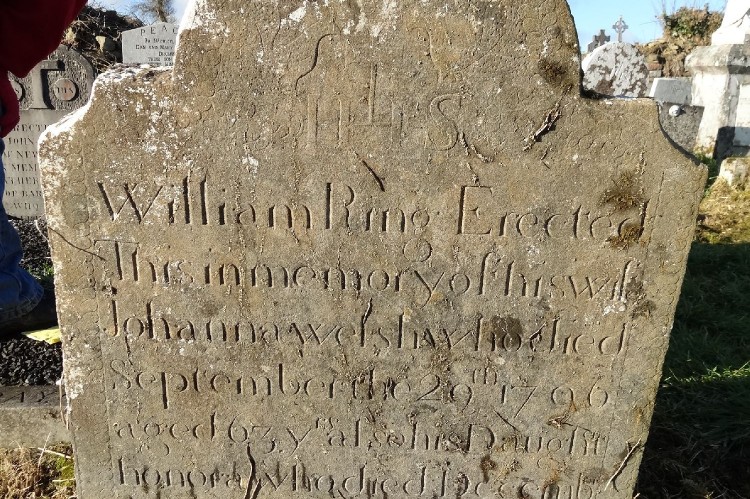 PEACE
IHS
William Ring Erected
This in memory of his wife
Johanna welsh who died
September the 29th 1796
aged 63 yrs also his Daught
honora who died Decemb